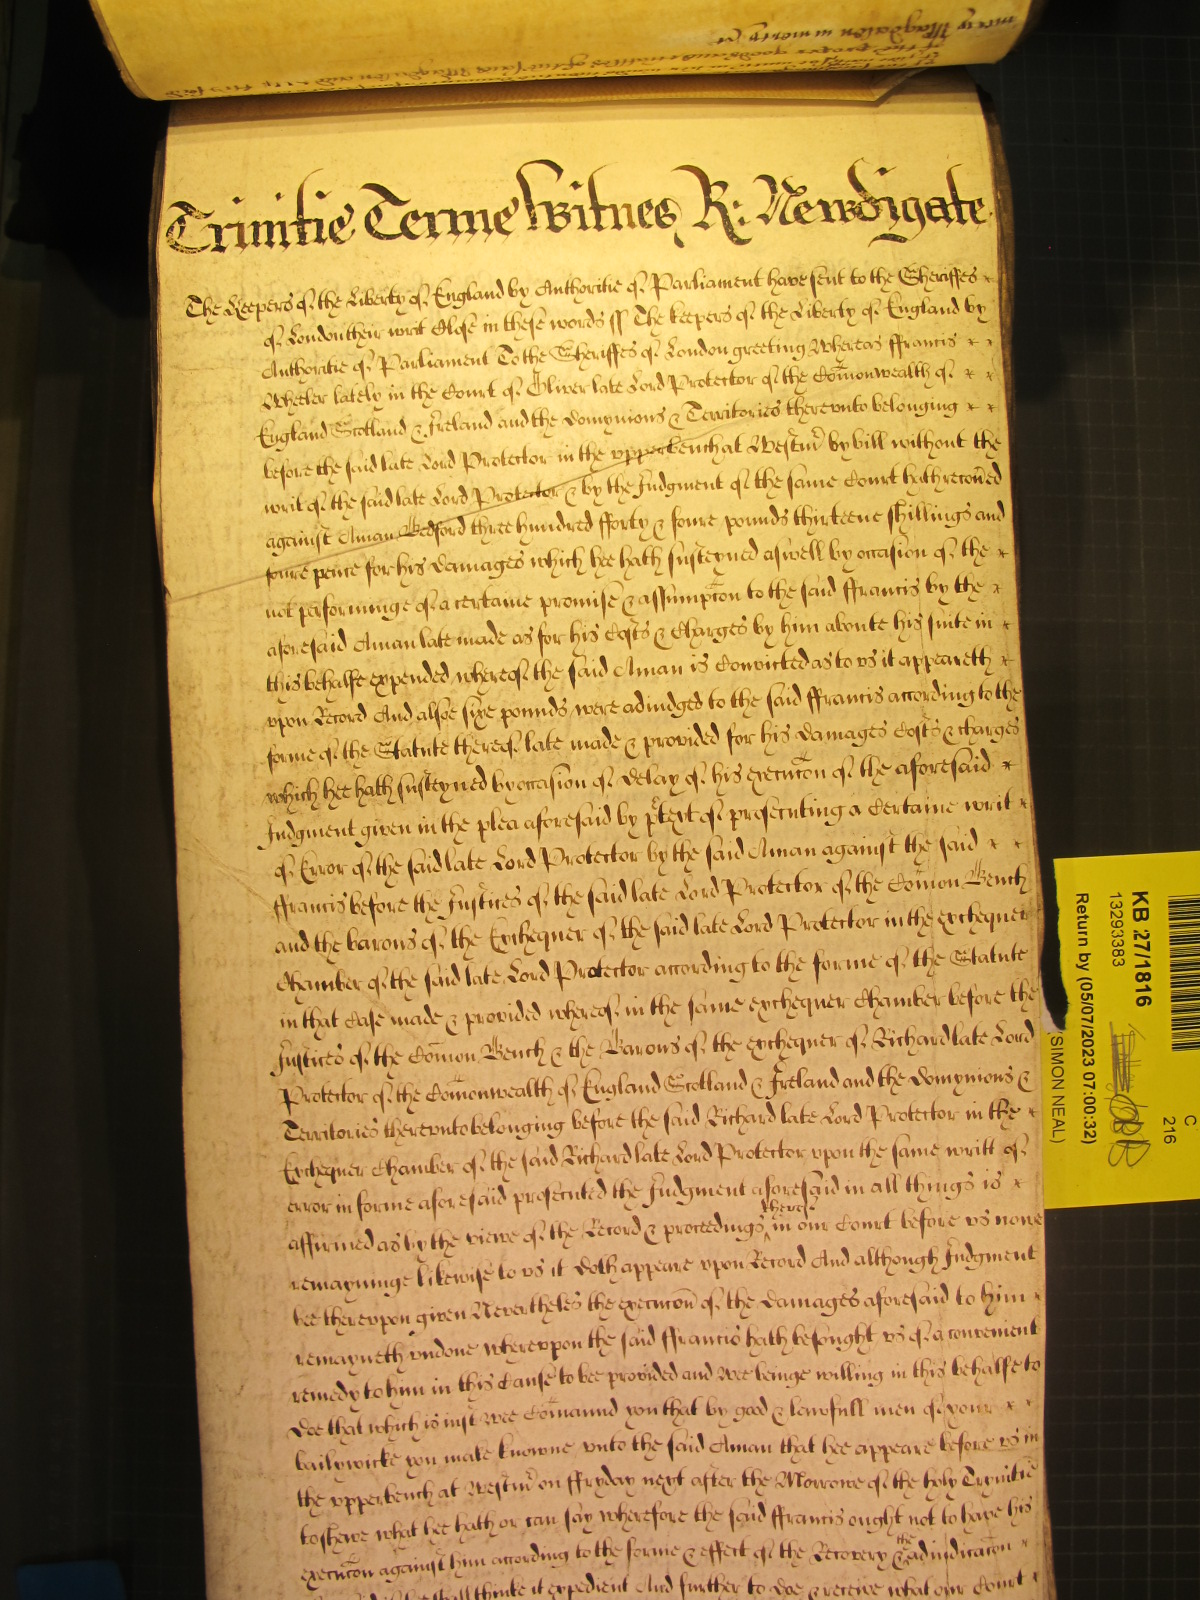 mercy Magdalen in mercy &c
Trinitie Terme Witnes R: Newdigate
The Keepers of the Liberty of England by Authoritie of Parliament have sent to the Sheriffes
of London their writ Close in these words ss The keepers of the Liberty of England by
Authoritie of Parliament To the Sheriffes of London greeting Whereas ffrancis
Wheeler lately in the Court of Oliver late Lord Protector of the Com̄onwealth of
England Scotland & Ireland and the domynions & Territories therevnto belonging
before the said late Lord Protector in the vpper bench at Westmr by bill without the
writ of the said late Lord Protector & by the Judgment of the same Court hath recoūed
against Aman Bedford three hundred fforty & foure pounds thirteene shillings and
foure pence for his damages which hee hath susteyned aswell by occasion of the
not performinge of a certaine promise & assumpc̄on to the said ffrancis by the
aforesaid Aman late made as for his Costs & Charges by him aboute his suite in
this behalfe expended whereof the said Aman is Convicted as to vs it appeareth
vpon Record And alsoe sixe pounds were adiudged to the said ffrancis according to the
forme of the Statute thereof late made & provided for his damages Costs & charges
which hee hath susteyned by occasion of delay of his execuc̄on of the aforesaid
Judgment given in the plea aforesaid by ptext of prosecuting a Certaine writ
of Error of the said late Lord Protector by the said Aman against the said
ffrancis before the Justices of the said late Lord Protector of the Com̄on Bench
and the barons of the Exchequer of the said late Lord Protector in the exchequer
Chamber of the said late Lord Protector according to the forme of the Statute
in that Case made & provided whereof in the same exchequer Chamber before the
Justices of the Com̄on Bench & the Barons of the exchequer of Richard late Lord
Protector of the Com̄onwealth of England Scotland & Ireland and the domynions &
Territories therevnto belonging before the said Richard late Lord Protector in the
Exchequer Chamber of the said Richard late Lord Protector vpon the same writt of
error in forme aforesaid prosecuted the Judgment aforesaid in all things is
affirmed as by the viewe of the Record & proceedings thereof in our Court before vs nowe
remayninge likewise to vs it doth appeare vpon Record And although Judgment
bee therevpon given Nevertheles the execuc̄on of the damages aforesaid to him
remayneth vndone wherevpon the said ffrancis hath besought vs of a convenient
remedy to him in this Cause to bee provided and wee beinge willing in this behalfe to
doe that which is iust wee Com̄aund you that by good & lawfull men of your
bailywicke you make knowne vnto the said Aman that hee appeare before vs in
the vpperbench at Westmr on ffryday next after the Morrowe of the holy Trynitie
to shewe what hee hath or can say wherefore the said ffrancis ought not to have his
execuc̄on against him according to the forme & effect of the Recovery & the adiudicac̄on
shall thinke it expedient And further to doe & receive what our Court
KB 27/1816
13293383
Return by (05/07/2023 07:00:32)
(SIMON NEAL)
C
216